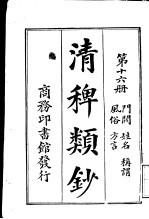 第十六册
門閥 姓名 稱謂
風俗 方言
清稗類鈔
商務印書館發行